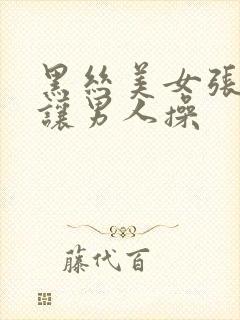 黑丝美女張
讓男人操
藤代百